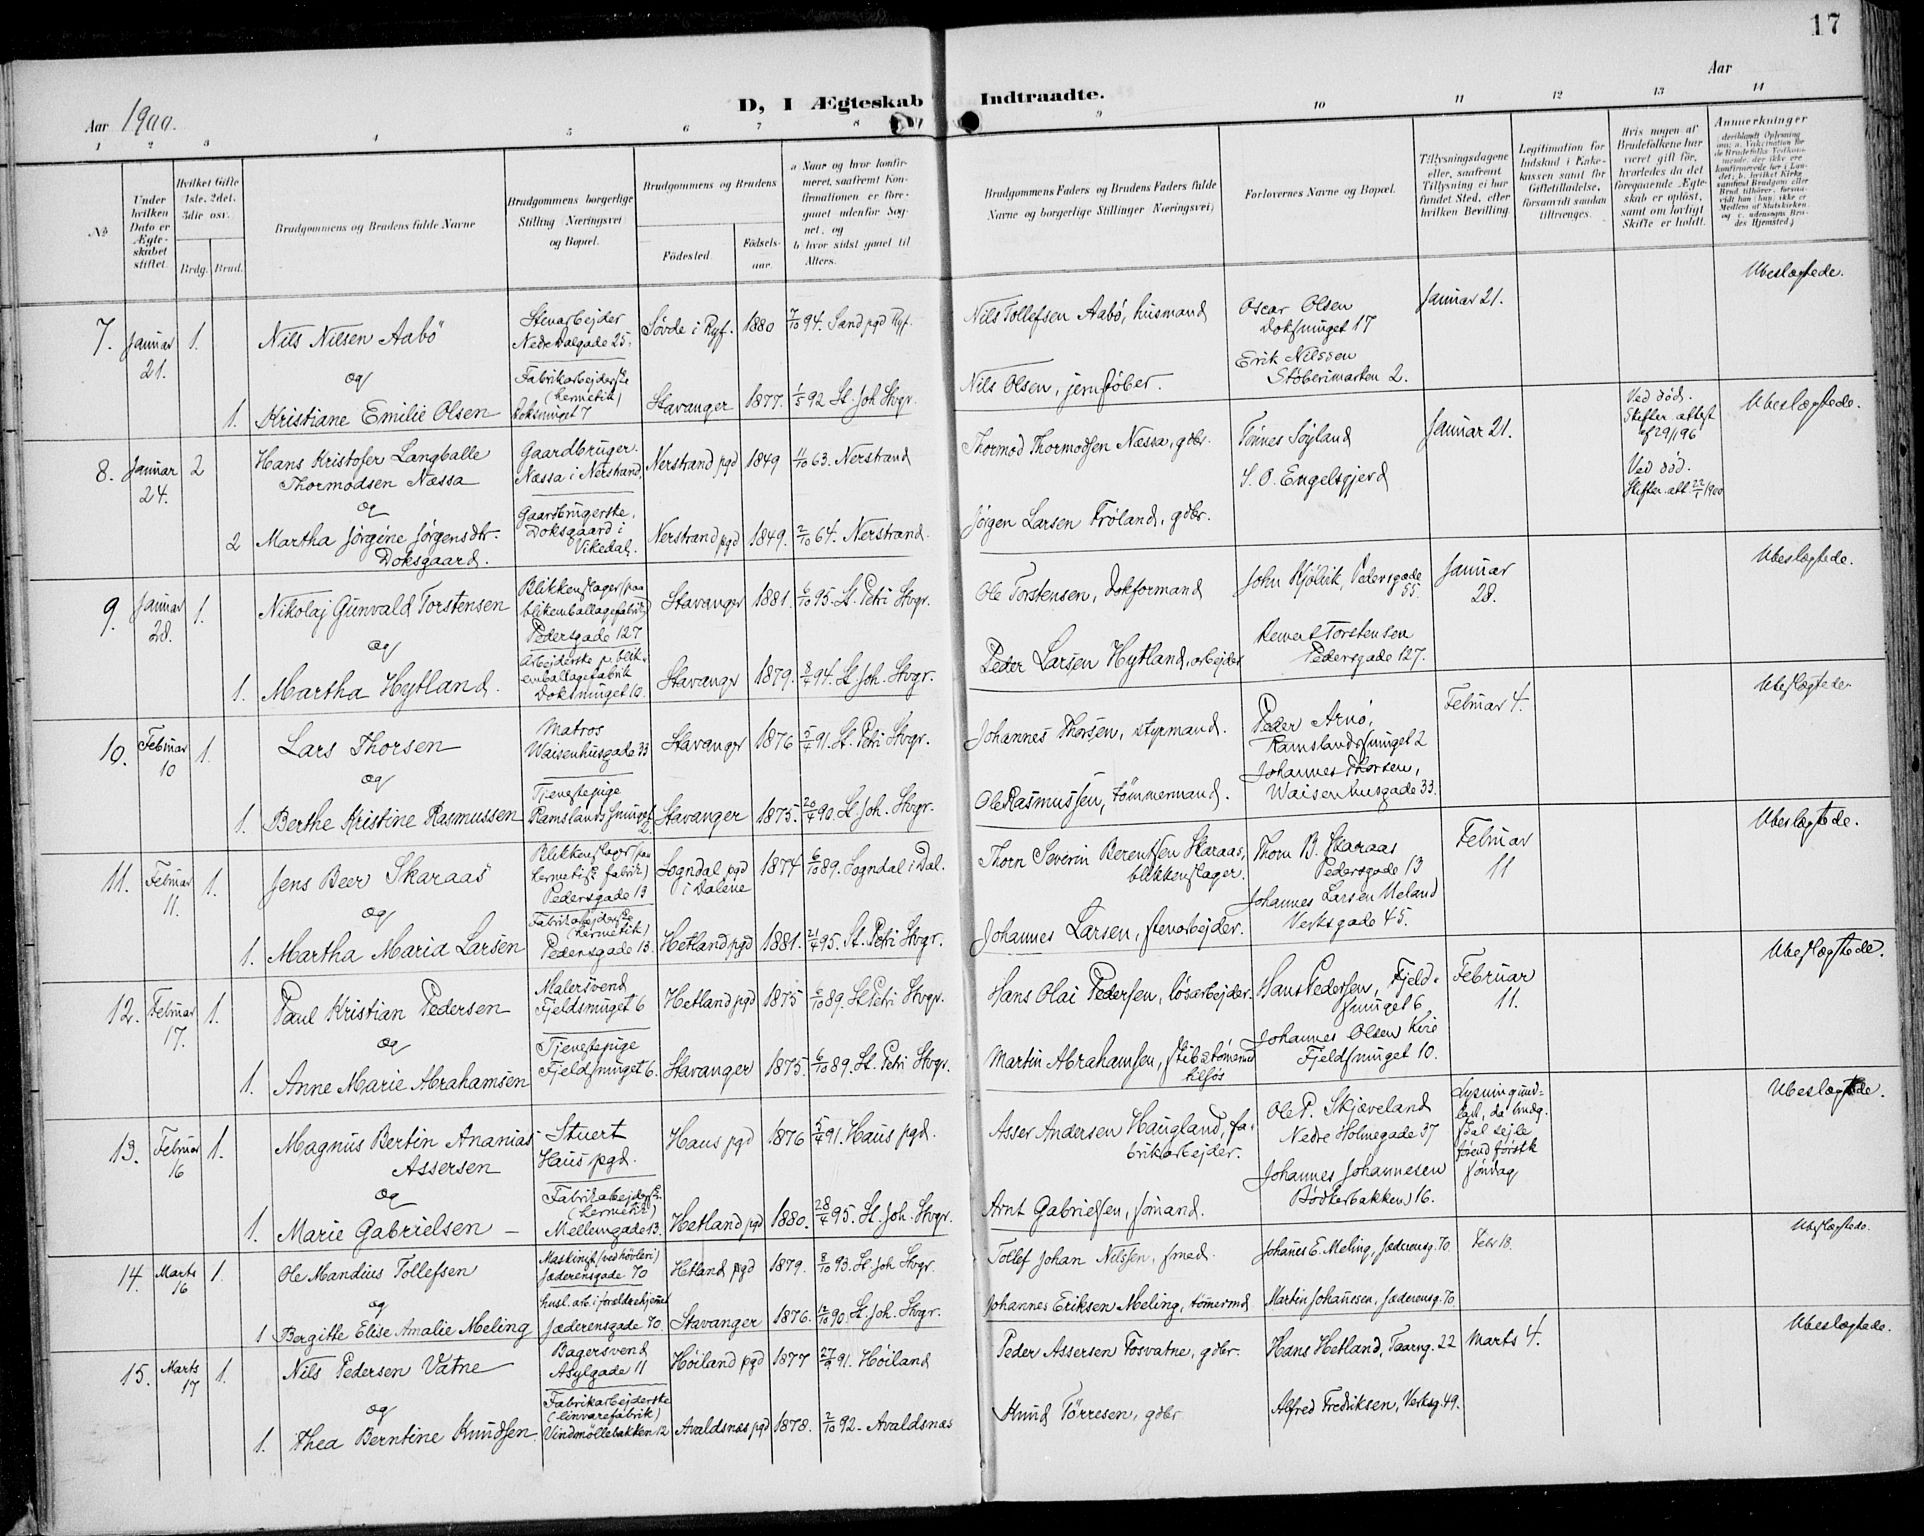 17
D, I Ægteskab Indtraadte.
Aar 1900.
Aar
1 2 3 4 5 6 7 8 9 10 11 12 13 14
No
Under hvilken Dato er Ægteskabet stiftet.
Hvilket Gifte 1ste, 2det, 3die osv.
Brdg. Brud.
Brudgommens og Brudens fulde Navne
Brudgommens borgerlige Stilling (Næringsvei) og Bopæl.
Brudgommens og Brudens
Fødested.
Fødselsaar.
a Naar og hvor konfirmeret, saafremt Konfirmationen er foregaaet udenfor Sognet, og
b hvor sidst gaaet til Alters.
Brudgommens Faders og Brudens Faders fulde Navne og borgerlige Stillinger (Næringsvei)
Forlovernes Navne og Bopæl.
Tillysningsdagene eller, saafremt Tillysning ei har fundet Sted, efter hvilken Bevilling.
Legitimation for Indskud i Enkekassen samt for Giftetilladelse, forsaavidt saadan tiltrænges.
Hvis nogen af Brudefolkene har været gift før, hvorledes da det foregaaende Ægteskab er opløst, samt om lovligt Skifte er holdt.
Anmerkninger
7. Januar 21. 1. Nils Nilsen Aabö
Stenarbejder
Nedre Dalgade 25.
Søvde i Ryf. 1880 7/10 94. Sand pgd Ryf.
Nils Tollefsen Aabö, husmand
Oscar Olsen
Doksmuget 17
Januar 21.
Ubeslægtede.
og
1. Kristiane Emilie Olsen
Fabrikarbejderske
(hermetik)
Doksmuget 7
Stavanger 1877. 1/5 92 St. Joh. Stvgr.
Nils Olsen, jernstøber.
Erik Nilssen
Støberimarken 2.
8. Januar 24. 2 Hans Kristofer Langballe
Thormodsen Næssa
Gaardbruger.
Næssa i Nerstrand,
Nerstrand pgd 1849 11/10 63. Nerstrand
Thormod Thormodsen Næssa, gdbr.
Tönnes Söyland
Januar 21.
Ved död.
Skifteattest
af 29/1 96
Ubeslægtede.
og
2 Martha Jörgine Jörgensdtr.
Doksgaard.
Gaardbrugerske,
Doksgaard i
Vikedal.
Nerstrand pgd 1849. 2/10 64. Nerstrand.
Jørgen Larsen Fröland, gdbr.
S. O. Engelsgjerd
Ved död.
Skifteatt. 22/1 1900
9. Januar 28. 1. Nikolaj Gunvald Torstensen
Blikkenslager (paa
blikemballagefabrik)
Pedersgade 127
Stavanger 1881. 6/10 95. St. Petri Stvgr.
Ole Torstensen, Dokformand
John Kjölvik, Pedersgade 55.
Januar
28.
Ubeslægtede.
og
1. Martha Hytland.
Arbejderske p. blik-
emballagefabrik
Doksmuget 10.
Stavanger 1879. 8/4 94. St. Joh. Stvgr.
Peder Larsen Hytland, arbejder
Torstensen
Pedersgade 127.
10. Februar 10 1. Lars Thorsen
Matros
Waisenhusgade 33
Stavanger 1876 5/4 91. St. Petri Stvgr.
Johannes Thorsen, styrmand.
Peder Arnö,
Ramslandssmuget 2
Februar 4.
Ubeslægtede
og
1. Berthe Kristine Rasmussen
Tjenestepige
Ramslandssmuget 2
Stavanger 1875. 20/4 90. St. Joh. Stvgr.
Ole Rasmussen, tømmermand.
Johannes Thorsen,
Waisenhusgade 33.
11. Februar 11. 1. Jens Beer Skaraas
Blikkenslager (paa
hermetisk fabrik)
Pedersgade 13
Sogndal pgd
i Dalene
1874 6/10 89. Sogndal i Dal.
Thorn Severin Berentsen Skaraas,
blikkenslager.
Thorn B. Skaraas
Pedersgade 13
Februar
11
Ubeslægtede.
og
1. Martha Maria Larsen
Fabrikarbejderske
(hermetik)
Pedersgade 13.
Hetland pgd 1881. 21/4 95. St. Petri Stvgr.
Johannes Larsen, stenarbejder.
Johannes Larsen Ueland
Verksgade 45.
12. Februar 17. 1. Paul Kristian Pedersen
Malersvend
Fjeldsmuget 6
Hetland pgd 1875 6/10 89. St. Petri Stvgr.
Hans Olai Pedersen, løsarbejder.
Hans Pedersen, Fjeld-
smuget 6
Februar
11.
Ubeslægtede.
og
1. Anne Marie Abrahamsen
Tjenestepige
Fjeldsmuget 6.
Stavanger 1875. 6/10 89. St. Petri Stvgr.
Martin Abrahamsen, skibstömrmd
tilsjös
Johannes Olsen
Fjeldsmuget 10.
13. Februar 16 1. Magnus Bertin Ananias
Assersen
Stuert
Haus pgd.
Haus pgd 1876 5/4 91. Haus pgd.
Asser Andersen Haugland, fa-
brikarbejder.
Ole P. Skjæveland
Nedre Holmegade 37
Lysning und-
lad., da brudg.
skal sejle
førend første
söndag
Ubeslægtede.
og
1. Marie Gabrielsen
Fabrikarbejderske
(hermetik)
Mellemgade 13.
Hetland pgd 1880. 28/4 95. St. Joh. Stvgr.
Arnt Gabrielsen, sömand.
Johannes Johannesen
Bödkerbakken 16.
14. Marts 16 1. Ole Mandius Tollefsen
Maskinist (ved høvleri)
Jæderensgade 70
Hetland pgd 1879. 8/10 93. St. Joh Stvgr.
Tollef Johan Nilssen, smed.
Johannes E. Meling, Jæderensg. 70.
Febr 18.
Ubeslægtede.
og
1 Bergitte Elise Amalie Meling
husl. arb. i forældrehjemmet
Jæderensgade 70.
Stavanger 1876. 12/10 90. St. Joh. Stvgr.
Johannes Eriksen Meling, tömermd
Martin Johannesen, Jæderensg. 70
15. Marts 17 1. Nils Pedersen Vatne
Bagersvend
Asylgade 11
Höiland pgd 1877 27/9 91. Höiland
Peder Assersen Fosvatne, gdbr.
Hans Hetland, Taarng. 22
Marts 4.
Ubeslægtede.
og
1. Thea Berntine Knudsen
Fabrikarbejderske
(linvarefabrik)
Vindmöllebakken 12
Avaldsnæs pgd 1878. 2/10 92 - Avaldsnæs
Knud Törresen, gdbr
Alfred Fredriksen, Verksg. 49.